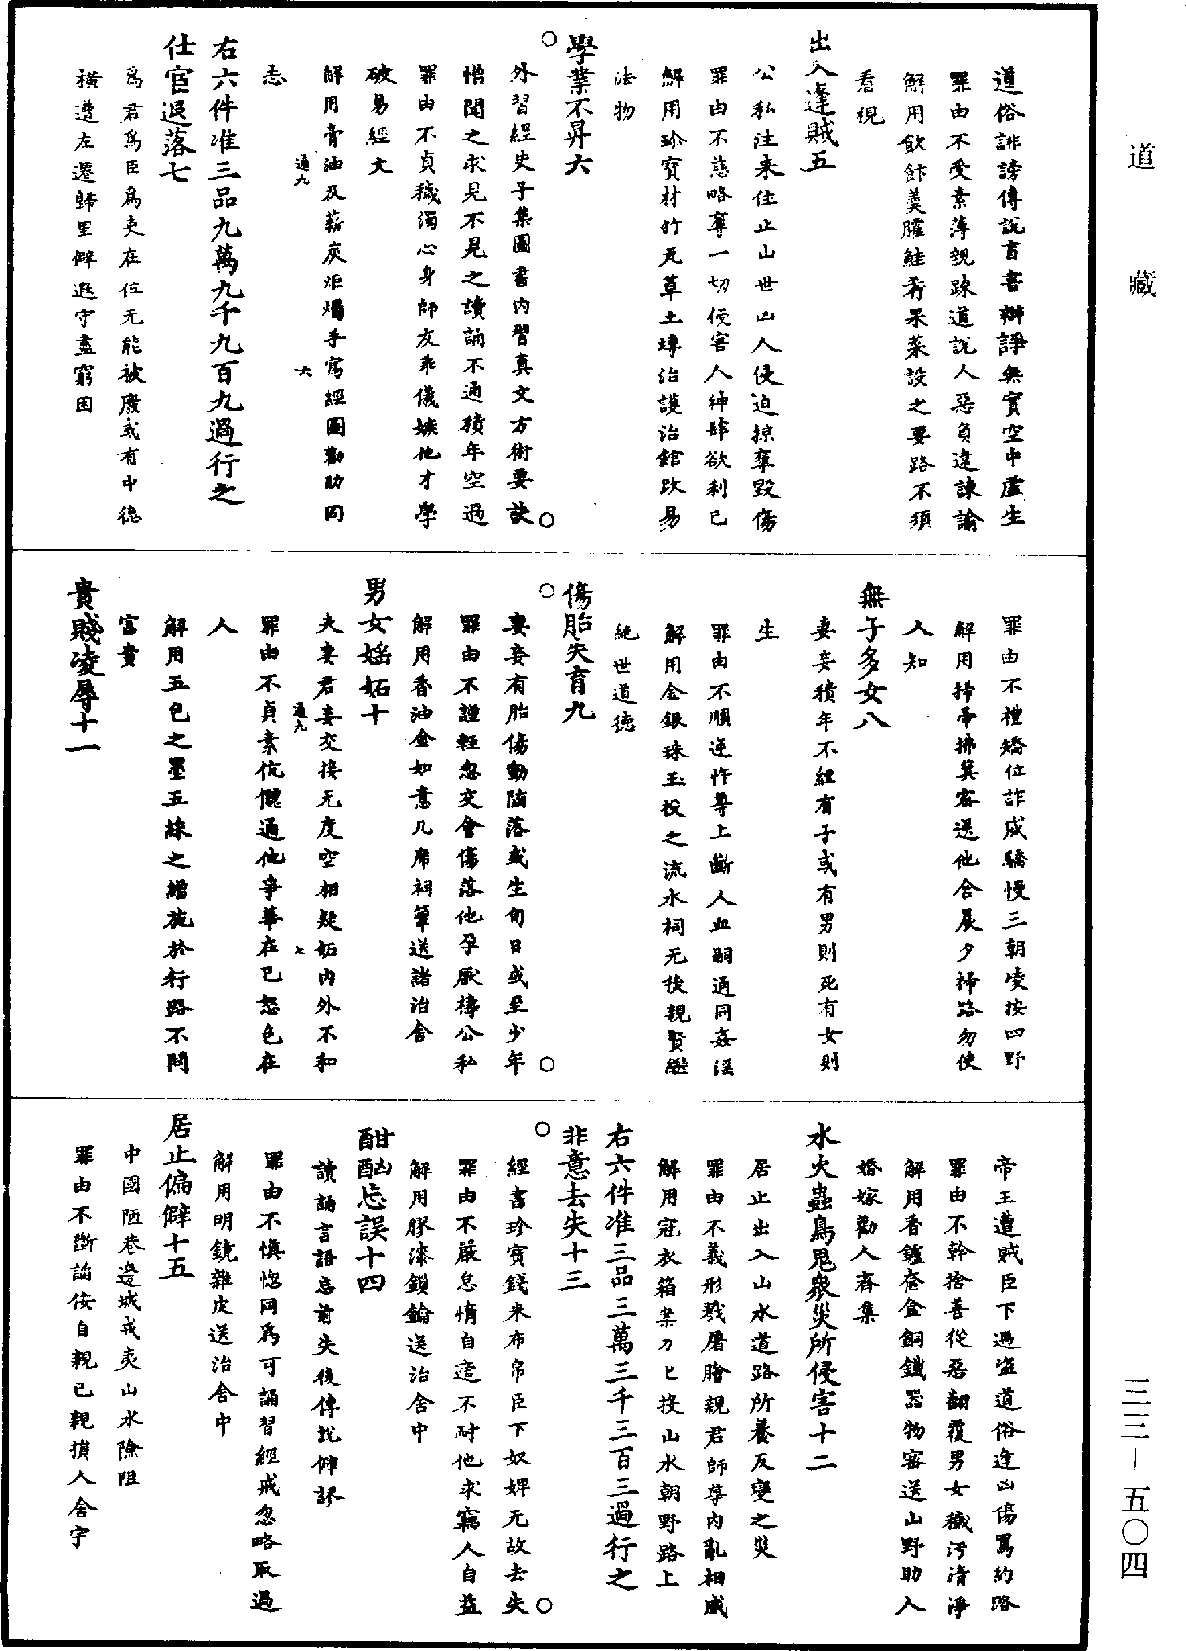 道藏
三三—五〇四
道俗誹謗傳說言書辯諍無實空中虛生
罪由不受素薄親疎道說人惡負違諫諭
解用飲飰羹臛鮭肴果菜設之要路不須
看視
出入逢賊五
公私注来住止山世凶人侵迫掠奪毀傷
罪由不慈略奪一切侵害人紳肆欲利己
解用珍寶材竹瓦草土塼治護治館改易
法物
學業不昇六
外習經史子集圖書內習真文方術要訣
憎聞之求見不見之讀誦不通積年空過
罪由不貞穢濁心身師友乖儀嫉他才學
破易經文
解用膏油及薪炭炬燭手寫經圖勸助同
志
通九 六
右六件准三品九萬九千九百九過行之
仕官退落七
爲君爲臣爲吏在位无能被廢或有中德
橫遭左遷歸里僻遐守盡窮困
罪由不禮矯位詐威驕慢三朝凌按四野
解用掃帚拂箕密送他舍晨夕掃路勿使
人知
無子多女八
妻妾積年不經有子或有男則死有女則
生
罪由不順逆忤尊上斷人血嗣通同姦淫
解用金銀珠玉投之流水祠无後親賢繼
絶世道德
傷胎失育九
妻妾有胎傷動墮落或生旬日或至少年
罪由不謹輕忽交會傷落他孕厭禱公私
解用香油金如意几席祠筆送諸治舍
男女婬妬十
夫妻君妾交接无度空相疑妬內外不和
通九 七
罪由不貞素伉儷通他爭華在己怒色在
人
解用五色之墨五綵之繒施於行路不問
富貴
貴賤凌辱十一
帝王遭賊臣下遇盜道俗逢凶傷罵約路
罪由不幹捨善從惡翻覆男女穢污清淨
解用香鑪奩盒銅鐵器物密送山野助人
婚嫁勸人齊集
水火蟲鳥鬼衆災所侵害十二
居止出入山水道路所養反變之災
罪由不義形戮屠膾親君師尊內亂相威
解用冠衣箱案刀匕投山水朝野路上
右六件准三品三萬三千三百三過行之
非意去失十三
經書珍寶錢米布帛臣下奴婢无故去失
罪由不嚴怠惰自恣不耐他求竊人自益
解用膠漆鎖鑰送治舍中
酣酗忘誤十四
讀誦言語忘前失後傳說僻謬
罪由不慎惚罔爲可誦習經戒忽略取過
解用明鏡雜皮送治舍中
居止偏僻十五
中國陋巷邊城戎夷山水險阻
罪由不斷諂佞自親已親損人舍宇